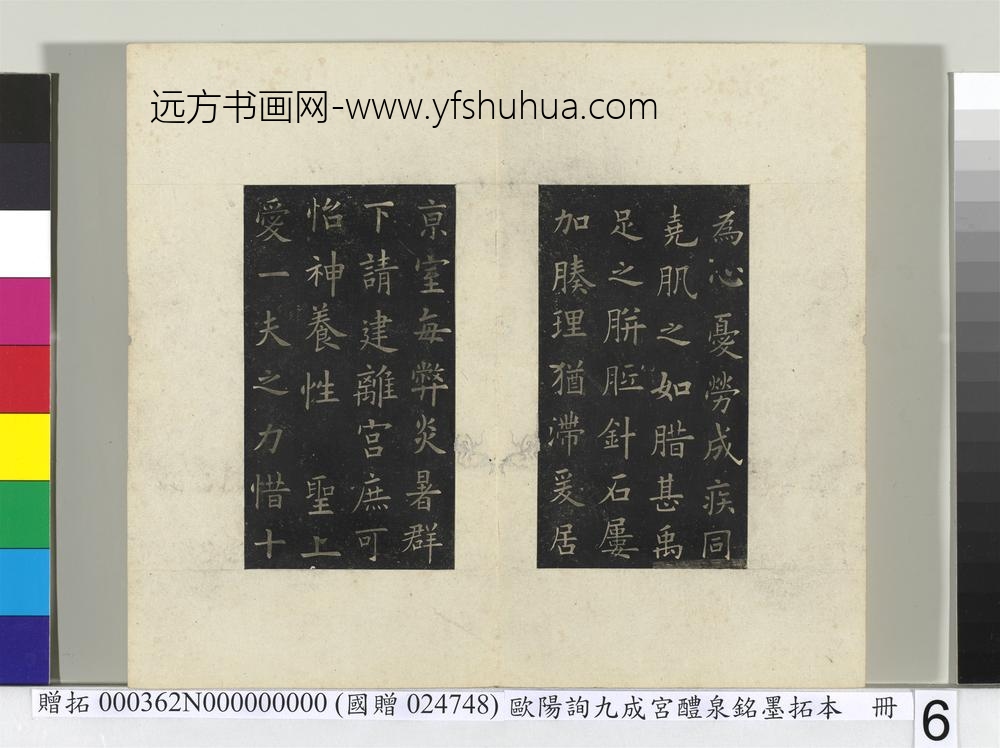 远方书画网-www.yfshuhua.com
為心憂勞成疾同
堯肌之如腊甚禹
足之胼胝針石屢
加腠理猶滯爰居
京室每弊炎暑群
下請建離宮庶可
怡神養性 聖上
愛一夫之力惜十
贈拓 000362N000000000 (國贈 024748) 歐陽詢九成宮醴泉銘墨拓本 冊
6